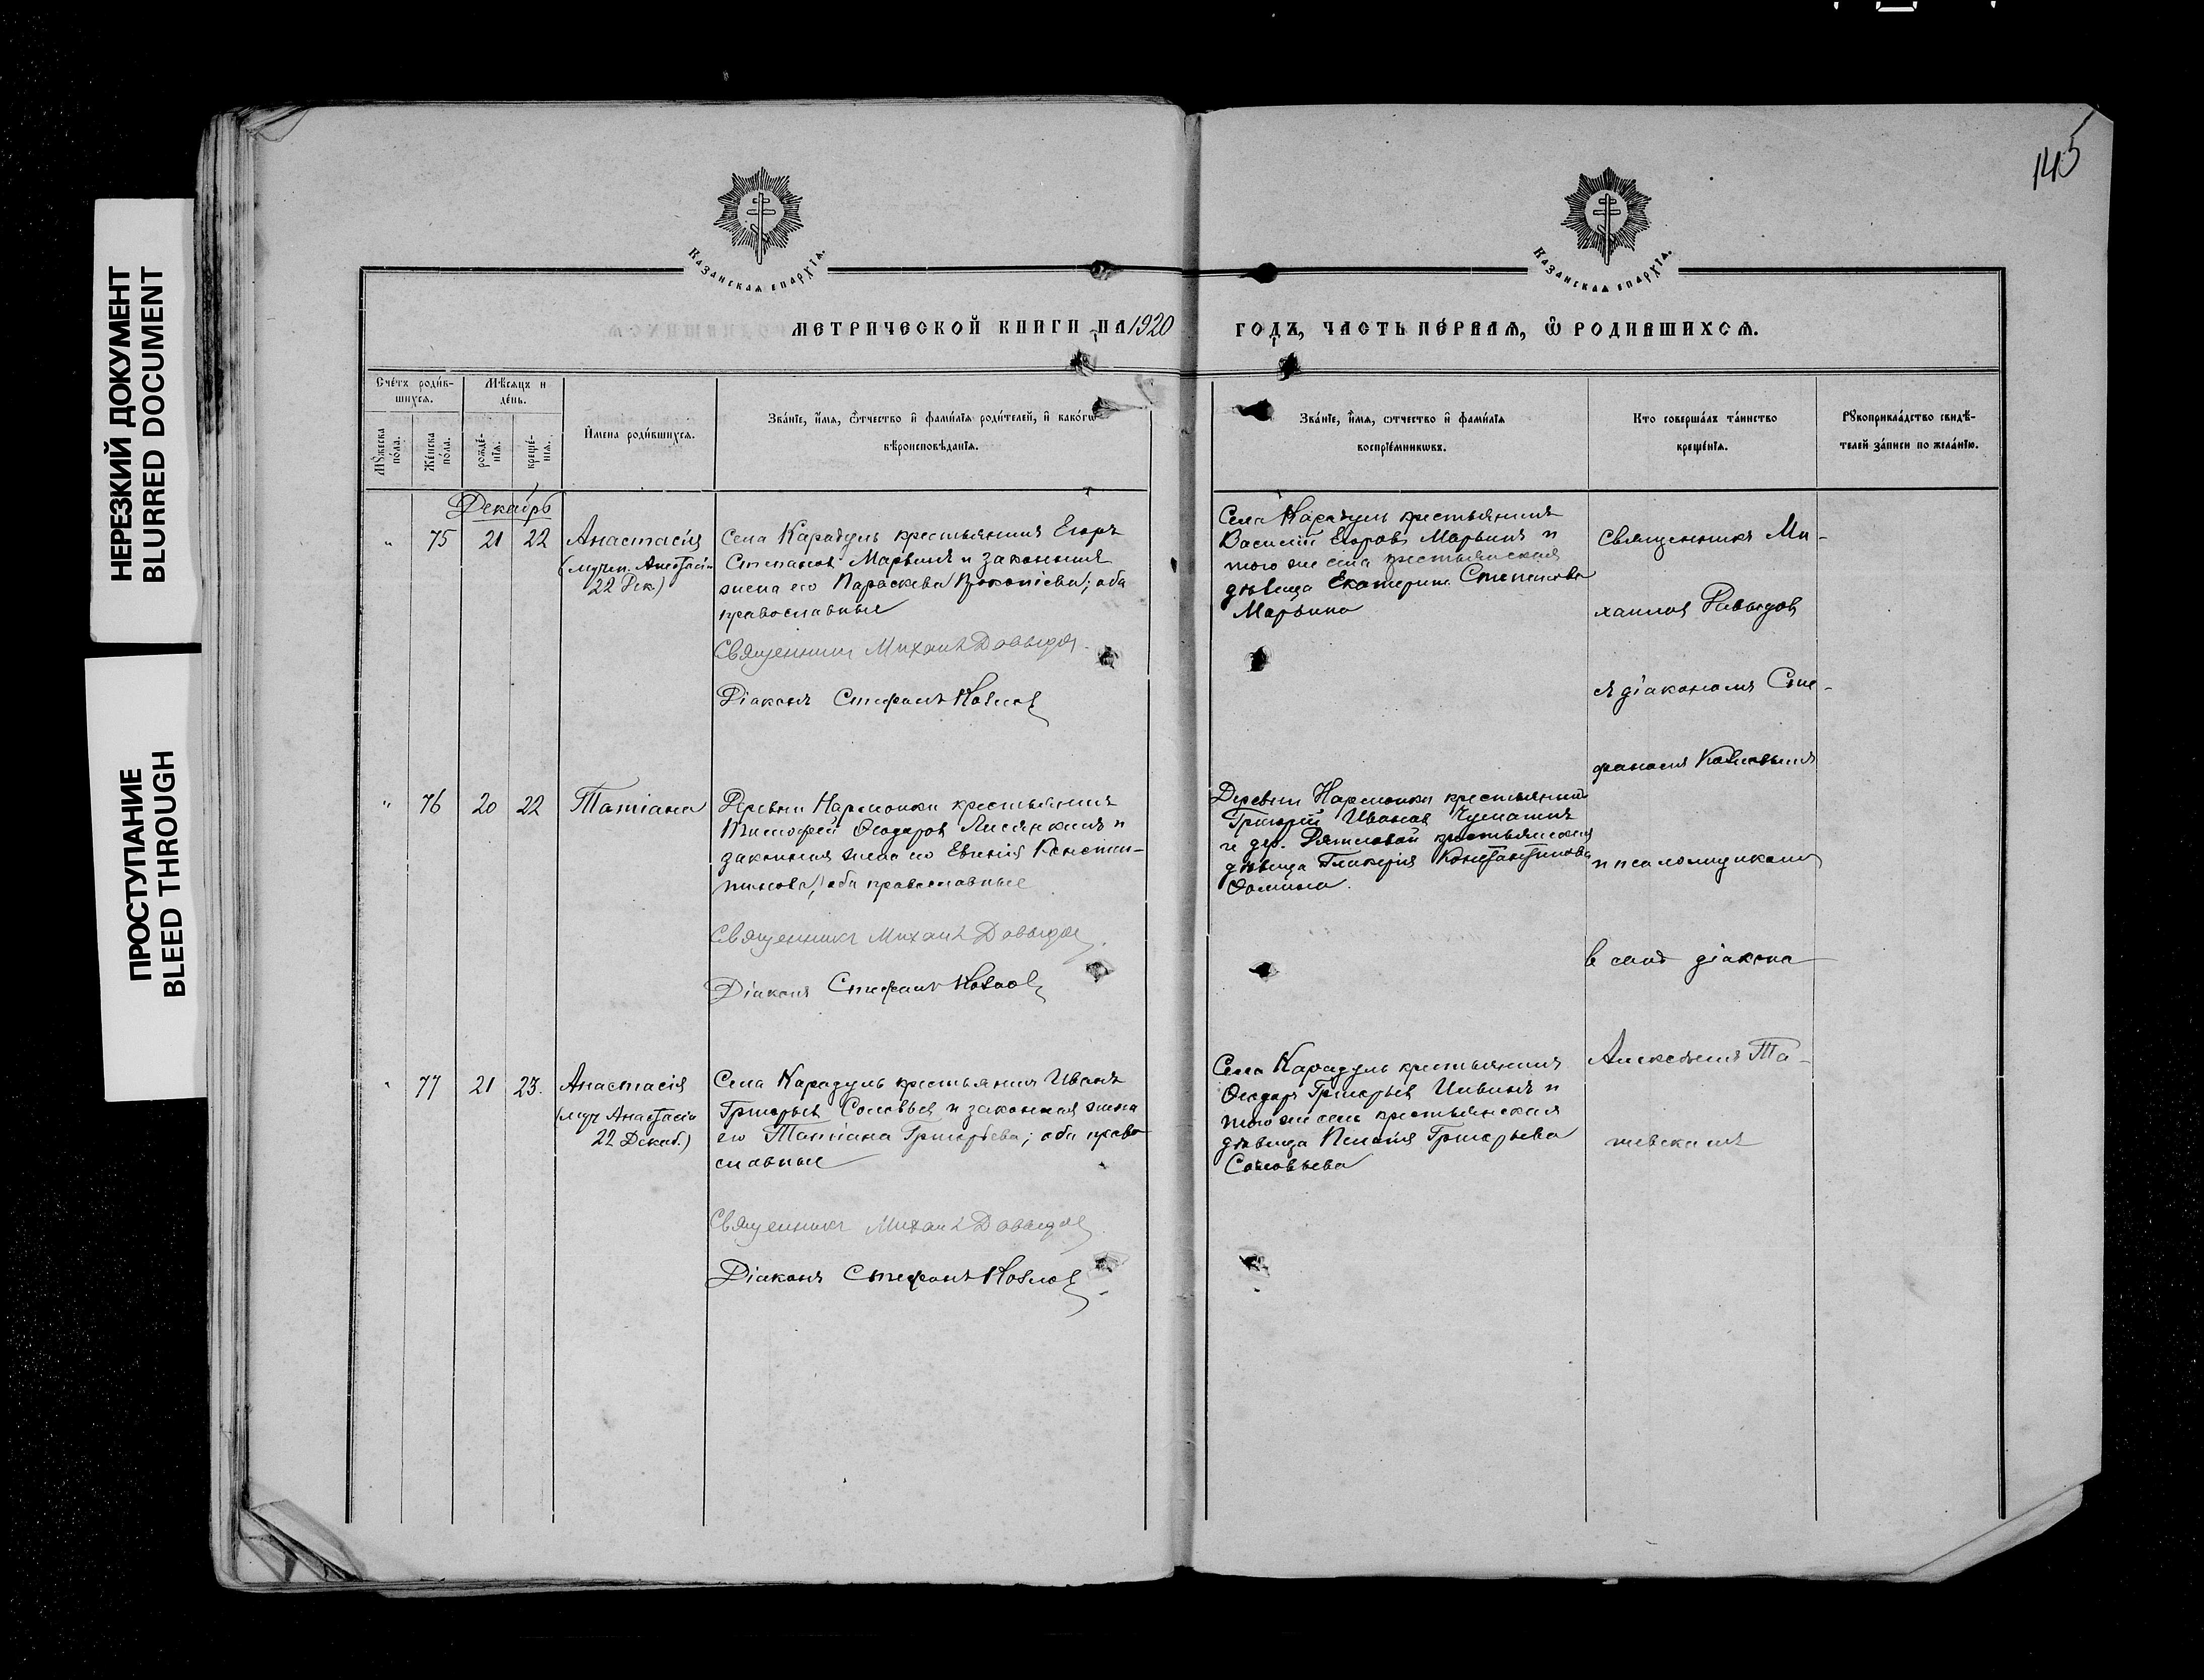 145
НЕРЕЗКИЙ ДОКУМЕНТ
BLURRED DOCUMENT
ПРОСТУПАНИЕ
BLEED THROUGH
Казанская епархїѧ.
Казанская епархїѧ.
МЕТРИЧЕСКОЙ КНИГИ НА 1920 ГОДЪ, ЧАСТЬ ПЕРВАЯ, Ѡ РОДИВШИХСѦ.
Счетъ родив-
шихсѧ.
Мѣсяцъ и
день.
Мꙋжеска
пола.
Женска
пола.
рожде-
нїѧ.
креще-
нїѧ.
Имена родившихсѧ.
Званїе, имѧ, ѿчество и фамилїѧ родителей, и какогѡ
вѣроисповѣданїѧ.
Званїе, имѧ, ѿчество и фамилїѧ
воспрїемникѡвъ.
Кто совершалъ таинство
крещенїѧ.
Рꙋкоприкладство свидѣ-
телей записи по желанїю.
Декабрь
" 75 21 22
Анастасія
(мучен. Анастасіи
22 Дек.)
Села Карадуль крестьянинъ Егоръ
Степановъ Марьинъ и законная
жена его Параскева Прокопіева; оба
православные
Священникъ Михаилъ Давыдовъ
Діаконъ Стефанъ Козловъ
Села Карадуль крестьянинъ
Василій Егоровъ Марьинъ и
того же села крестьянская
дѣвица Екатерина Степанова
Марьина
Священникъ Ми-
хаилъ Давыдовъ
съ діакономъ Сте-
фаномъ Козловымъ
и псаломщикомъ
в санѣ діакона
Алексѣемъ Та-
" 76 20 22
Татіана
Деревни Нармонки крестьянинъ
Тимофей Ѳеодоровъ
законная жена его Евгенія Констан-
тинова; оба православные
Священникъ Михаилъ Давыдовъ
Діаконъ Стефанъ Козловъ
Деревни Нармонки крестьянинъ
Григорій Ивановъ
и дер. крестьянская
дѣвица Гликерія Константинова
Ѳомина.
" 77 21 23.
Анастасія
(муч Анастасіи
22 Декаб.)
Села Карадуль крестьянинъ Иванъ
Григорьевъ Соловьевъ и законная жена
его Татіана Григорьева; оба право-
славные
Священникъ Михаилъ Давыдовъ
Діаконъ Стефанъ Козловъ
Села Карадуль крестьянинъ
Ѳеодоръ Григорьевъ и
того же села крестьянская
дѣвица Григорьева
Соловьева